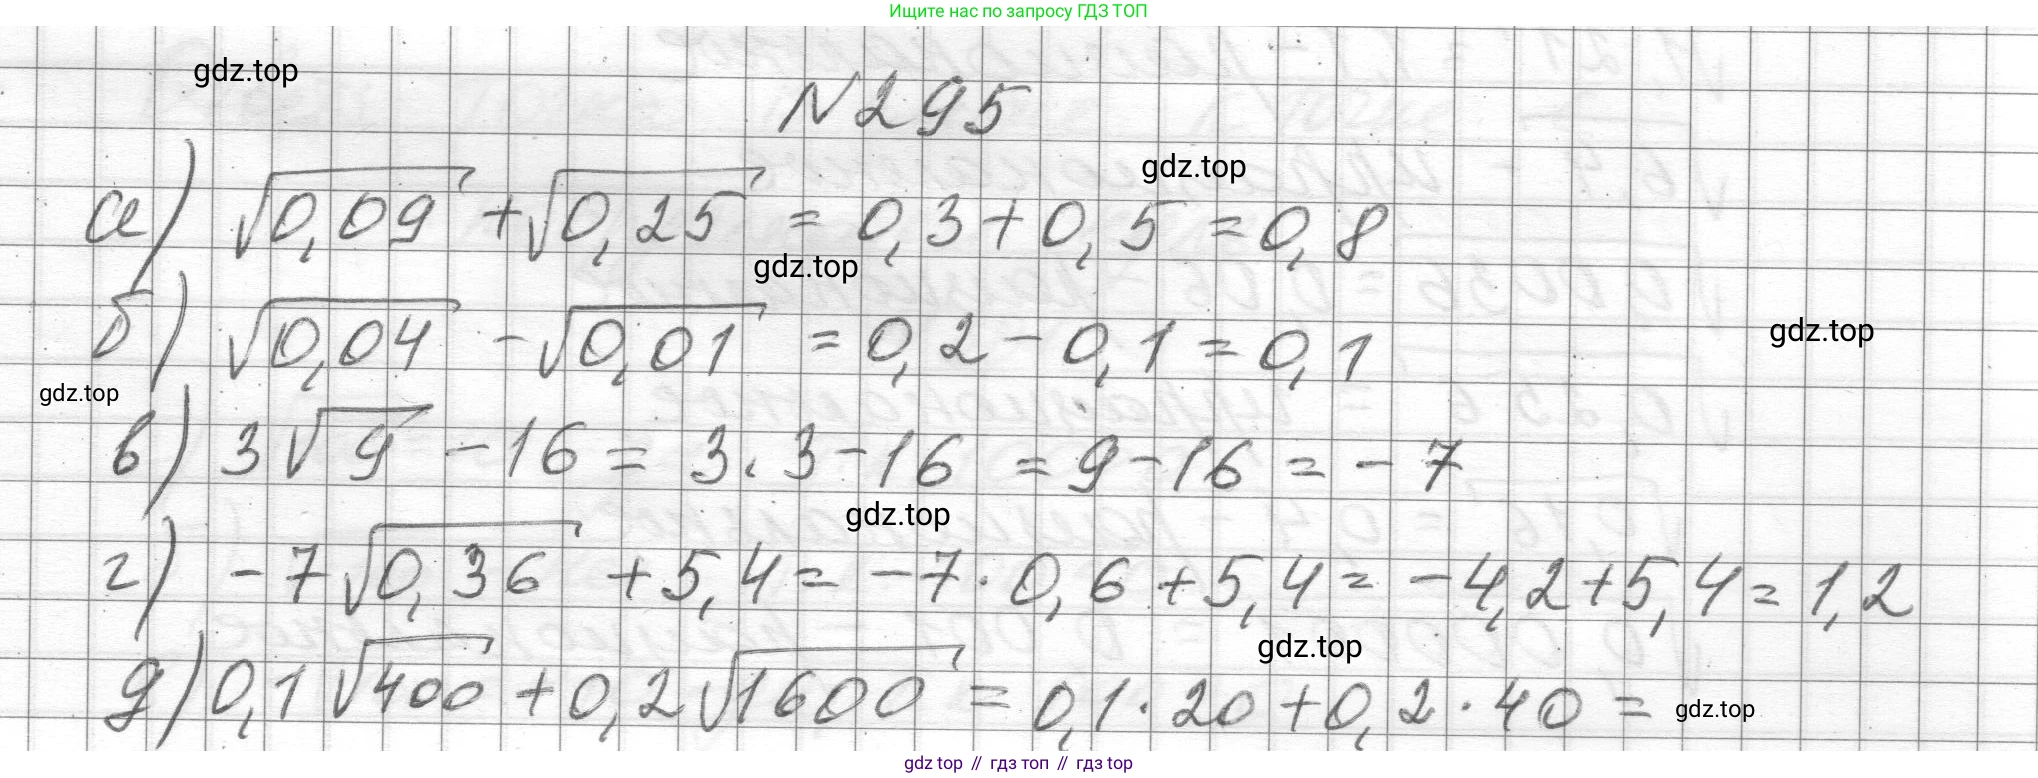 Ищите нас по запросу ГДЗ ТОП
gdz.top
№295
gdz.top
а) √0,09 + √0,25 = 0,3 + 0,5 = 0,8
gdz.top
б) √0,04 - √0,01 = 0,2 - 0,1 = 0,1
gdz.top
gdz.top
в) 3√9 - 16 = 3 · 3 - 16 = 9 - 16 = -7
gdz.top
г) -7√0,36 + 5,4 = -7 · 0,6 + 5,4 = -4,2 + 5,4 = 1,2
gdz.top
д) 0,1√400 + 0,2√1600 = 0,1 · 20 + 0,2 · 40 =
gdz.top
gdz top // гдз топ // гдз top